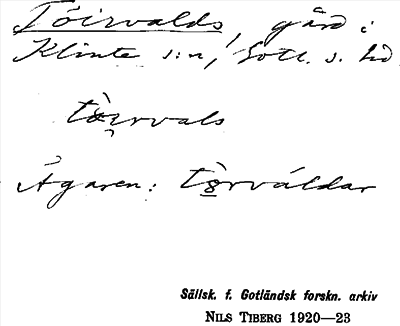 Töirvalds, gård i
Klinte s:n, Gotl. s. hd
tö̀i̯rvals
Ägaren: tö̀rváldar
Sällsk. f. Gotländsk forskn. arkiv
NILS TIBERG 1920—23